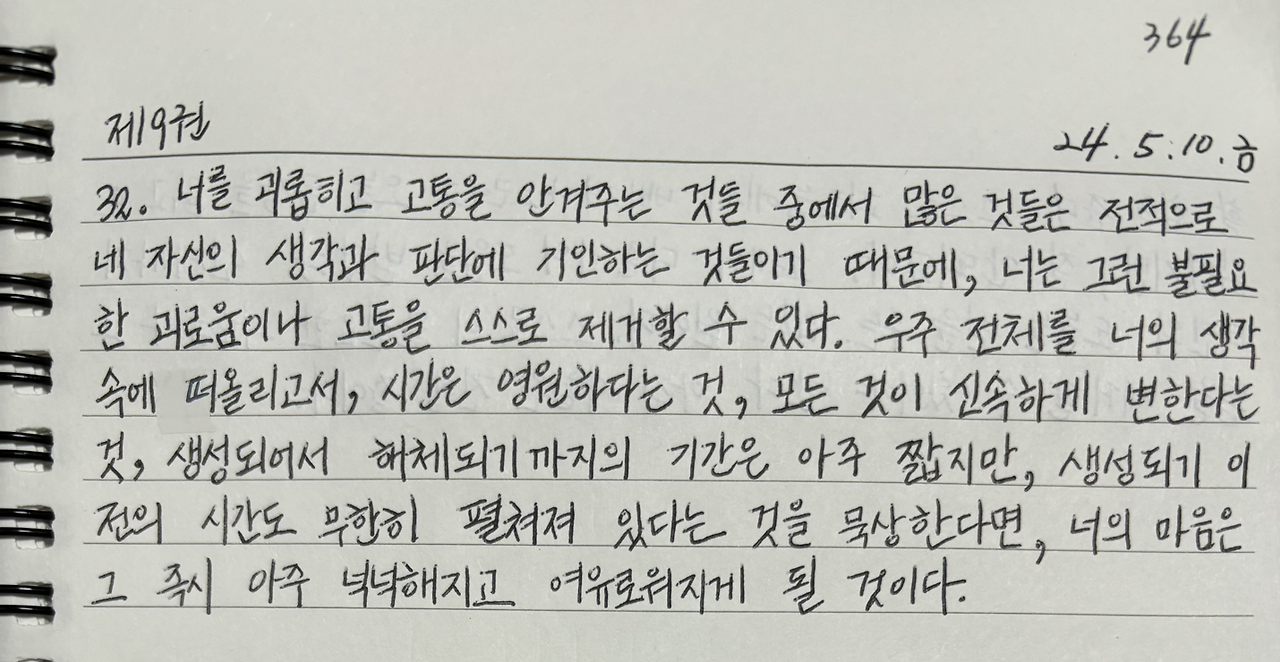 364
제9권
24.5.10.금
32. 너를 괴롭히고 고통을 안겨주는 것들 중에서 많은 것들은 전적으로
네 자신의 생각과 판단에 기인하는 것들이기 때문에, 너는 그런 불필요
한 괴로움이나 고통을 스스로 제거할 수 있다. 우주 전체를 너의 생각
속에 떠올리고서, 시간은 영원하다는 것, 모든 것이 신속하게 변한다는
것, 생성되어서 해체되기까지의 기간은 아주 짧지만, 생성되기 이
전의 시간도 무한히 펼쳐져 있다는 것을 묵상한다면, 너의 마음은
그 즉시 아주 넉넉해지고 여유로워지게 될 것이다.